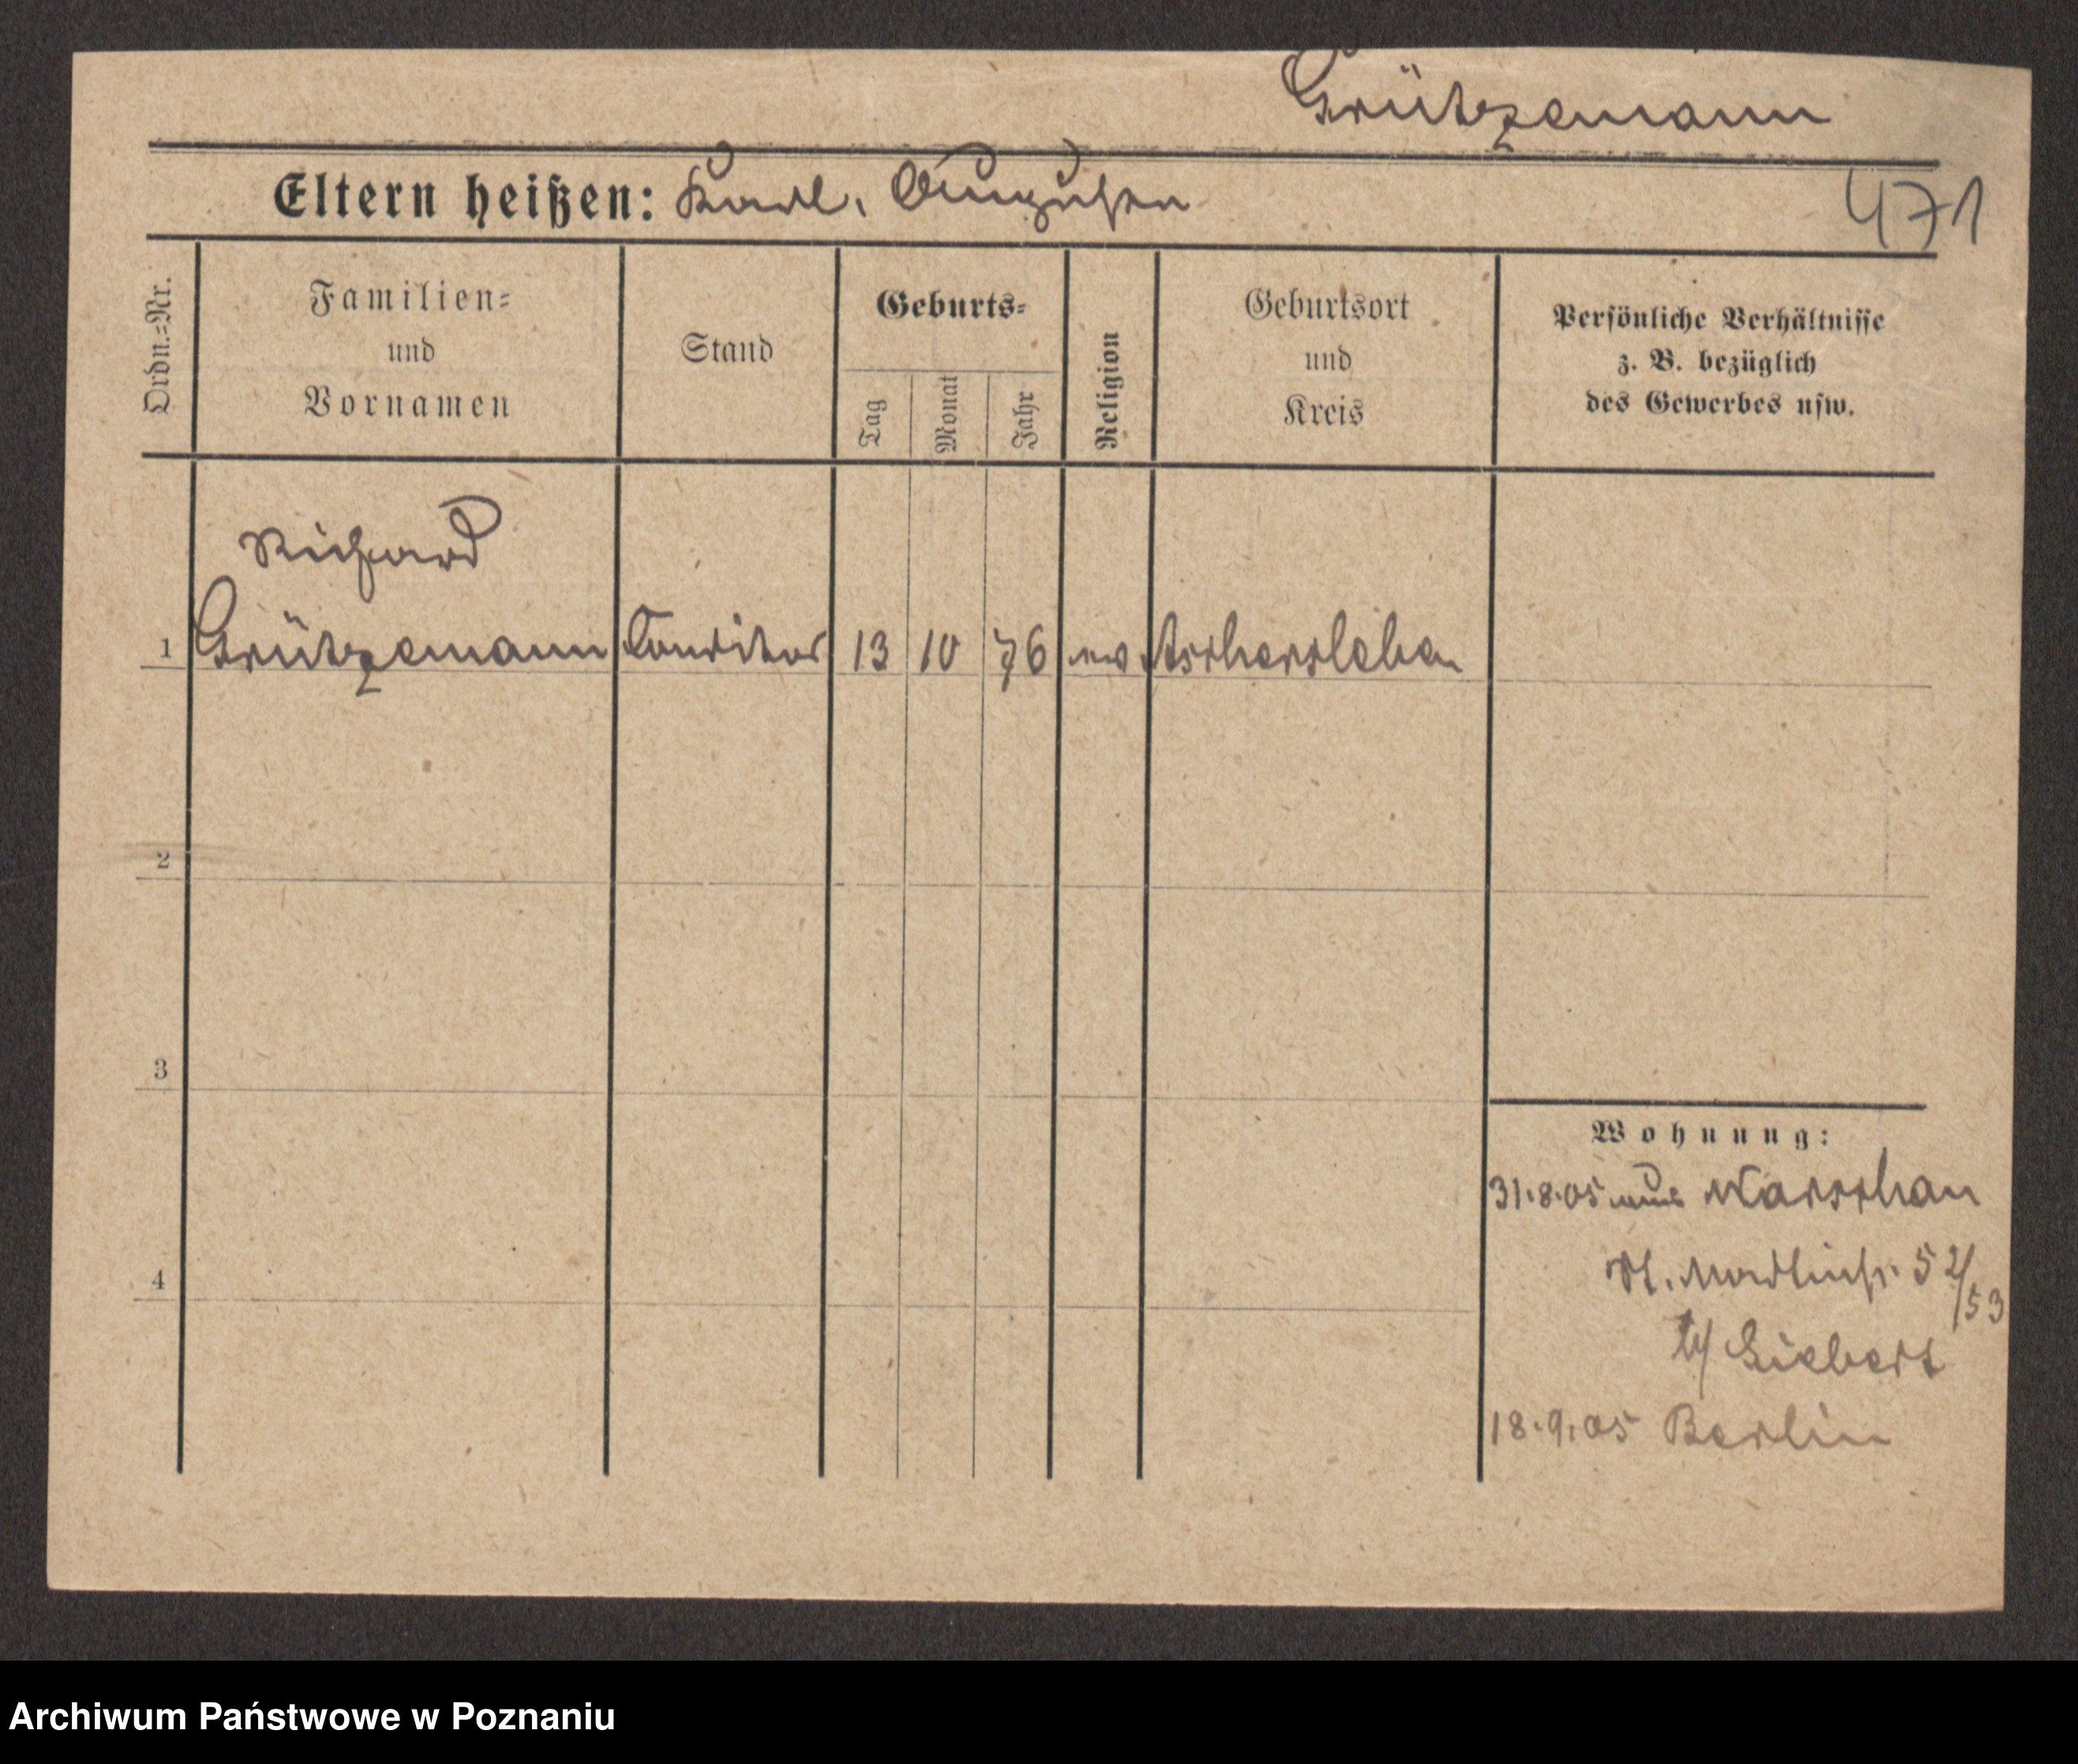 Grützemann
Eltern heißen: Karl, Auguste
471
Ordn.=Nr.
Familien=
und
Vornamen
Stand
Geburts=
Tag
Monat
Jahr
Religion
Geburtsort
und
Kreis
Persönliche Verhältnisse
z. B. bezüglich
des Gewerbes usw.
Richard
1 Grützemann Conditor 13 10 76 ev Aschersleben
2
3
4
Wohnung:
31.8.05 aus Warschau
St. Martinstr. 52/53
b/ Siebert
18.9.05 Berlin
Archiwum Państwowe w Poznaniu